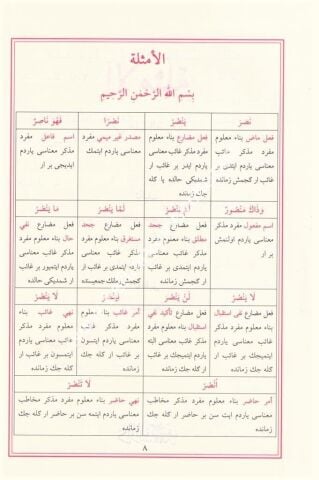 الأمثلة
بِسْمِ اللهِ الرَّحْمٰنِ الرَّحِيمِ
نَصَرَ
فعل ماض بناء معلوم
مفرد مذكر غائب
معناسى ياردم ايتدى بر
غائب ار كجمش زمانده
يَنْصُرُ
فعل مضارع بناء معلوم
مفرد مذكر غائب معناسى
ياردم ايدر بر غائب ار
شمديكى حالده يا كله
جك زمانده
نَصْرًا
مصدر غير ميمى مفرد
معناسى ياردم ايتمك
فَهُوَ نَاصِرٌ
اسم فاعل مفرد
مذكر معناسى ياردم
ايديجى بر ار
وذَاكَ مَنْصُورٌ
اسم مفعول مفرد مذكر
معناسى ياردم اولنمش
بر ار
لَمْ يَنْصُرْ
فعل مضارع جحد
مطلق بناء معلوم مفرد
مذكر غائب معناسى
ياردم ايتمدى بر غائب
ار كجمش زمانده
لَمَّا يَنْصُرْ
فعل مضارع جحد
مستغرق بناء معلوم مفرد
مذكر غائب معناسى
ياردم ايتمدى بر غائب ار
كجمش زمانك جميعسنده
مَا يَنْصُرُ
فعل مضارع نفي
حال بناء معلوم مفرد
مذكر غائب معناسى
ياردم ايتميور بر غائب
ار شمديكى حالده
لَا يَنْصُرُ
فعل مضارع نفي استقبال
بناء معلوم مفرد مذكر
غائب معناسى ياردم
ايتميجك بر غائب ار
كله جك زمانده
لَنْ يَنْصُرَ
فعل مضارع تأكيد نفي
استقبال بناء معلوم مفرد
مذكر غائب معناسى البته
ياردم ايتميجك بر غائب
ار كله جك زمانده
لِيَنْصُرْ
أمر غائب بناء معلوم
مفرد مذكر غائب
معناسى ياردم ايتسون
بر غائب ار كله جك
زمانده
لَا يَنْصُرْ
نهي غائب بناء
معلوم مفرد مذكر
غائب معناسى ياردم
ايتمسون بر غائب ار
كله جك زمانده
اُنْصُرْ
أمر حاضر بناء معلوم مفرد مذكر مخاطب
معناسى ياردم ايت سن بر حاضر ار كله جك
زمانده
لَا تَنْصُرْ
نهي حاضر بناء معلوم مفرد مذكر مخاطب
معناسى ياردم ايتمه سن بر حاضر ار كله جك
زمانده
٨